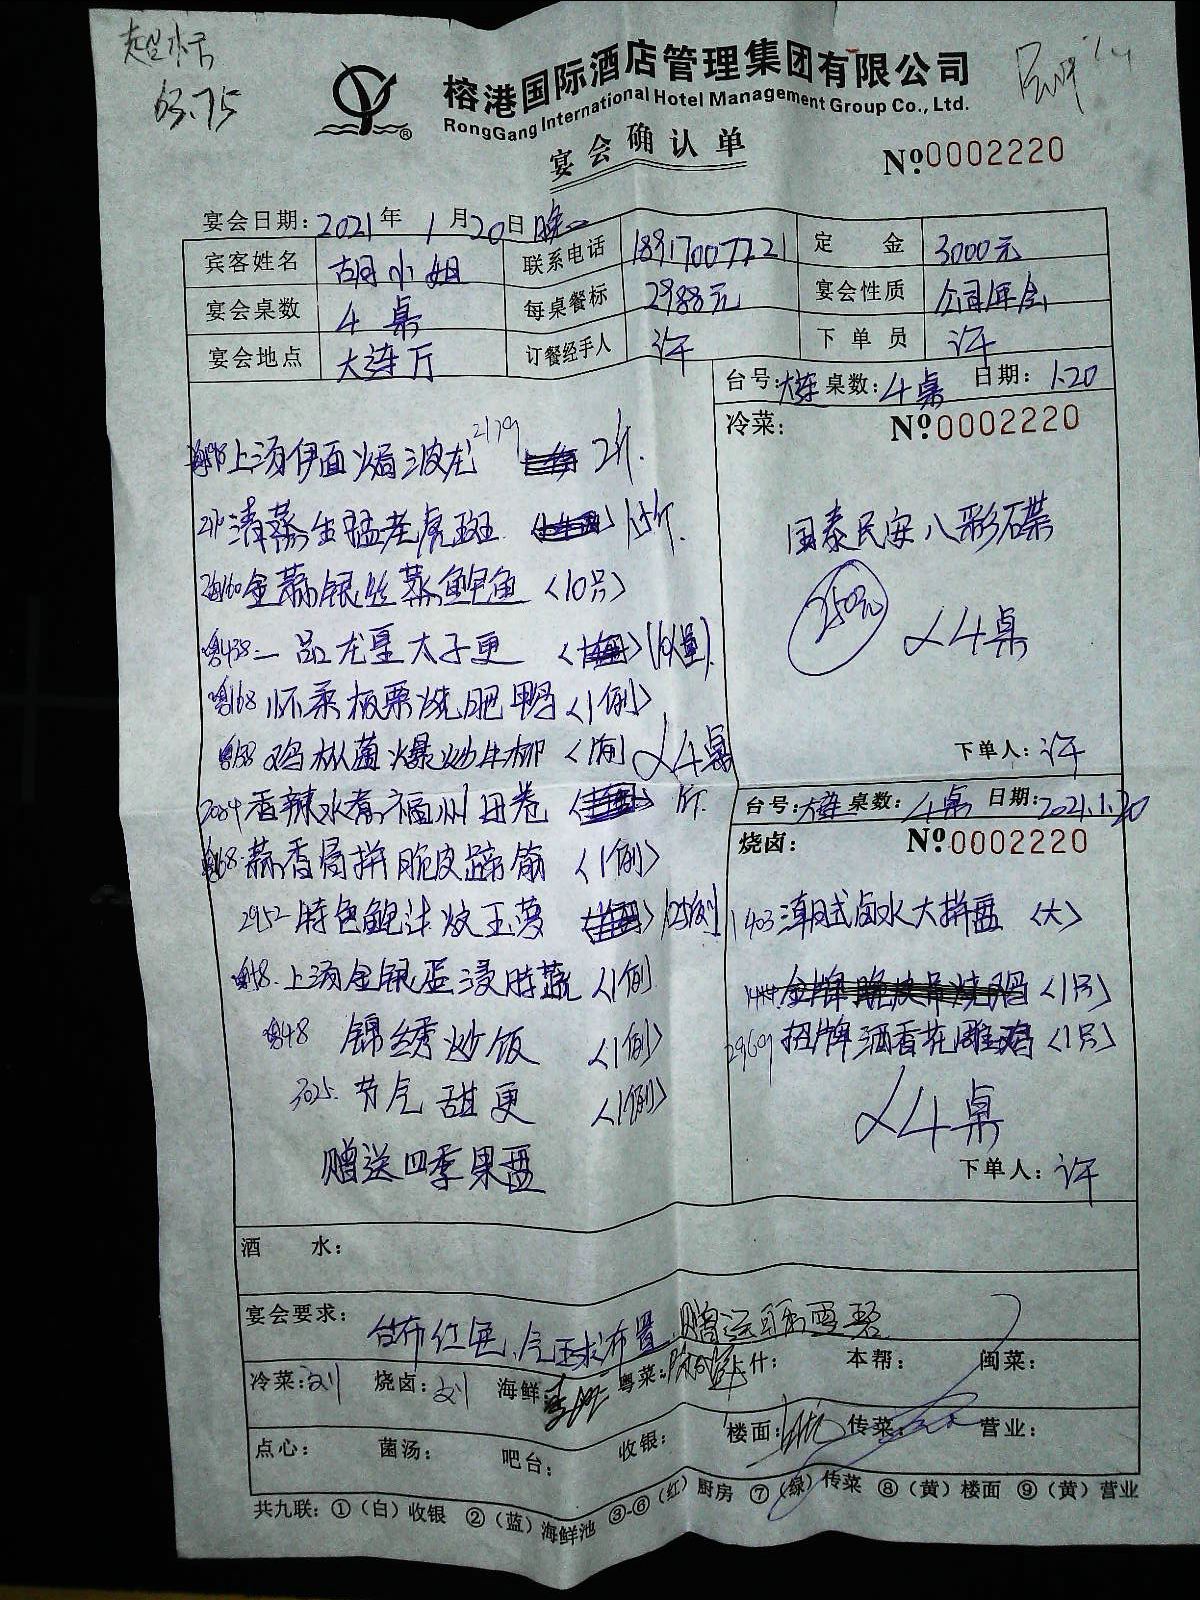 63.75
榕港国际酒店管理集团有限公司
RongGang International Hotel Management Group Co., Ltd.
®
宴会确认单
№0002220
宴会日期: 2021年 1月20日 晚
宾客姓名 胡小姐 联系电话 18917007721 定 金 3000元
宴会桌数 4桌 每桌餐标 2988元 宴会性质 公司年会
宴会地点 大连厅 订餐经手人 许 下单员 许
台号: 大连 桌数: 4桌 日期: 1.20
冷菜: №0002220
国泰民安八彩碟
250元 ×4桌
下单人: 许
上汤伊面焗波龙 2179 2斤
清蒸生猛老虎斑 1.5斤
金蒜银丝蒸鲍鱼 <10只>
一品龙皇太子羹
怀柔板栗烧肥鸭 <1例>
鸡枞菌爆炒牛柳 <1例>
×4桌
香辣水煮福州田卷 1斤
蒜香骨拼脆皮蹄筋 <1例>
2952 特色鲍汁炆玉萝
上汤金银蛋浸时蔬 <1例>
锦绣炒饭 <1例>
3025 节气甜羹 <1例>
赠送四季果盘
台号: 大连 桌数: 4桌 日期: 2021.1.20
烧卤: №0002220
1403 潮式卤水大拼盘 <大>
金牌脆皮吊烧鸡 <1只>
29609 招牌酒香花雕鸡 <1只>
×4桌
下单人: 许
酒 水:
宴会要求: 台布红色、气球布置
赠送
冷菜: 刘 烧卤: 刘 海鲜: 粤菜: 上什: 本帮: 闽菜:
点心: 菌汤: 吧台: 收银: 楼面: 传菜: 营业:
共九联: ①(白)收银 ②(蓝)海鲜池 ③-⑥(红)厨房 ⑦(绿)传菜 ⑧(黄)楼面 ⑨(黄)营业